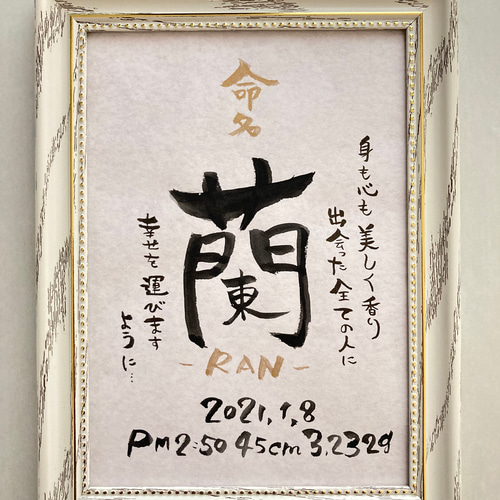 命名
身も心も美しく香り
出会った全ての人に
蘭
幸せを運びます
ように…
-RAN-
2021,1,8
PM2:50 45cm 3,232g